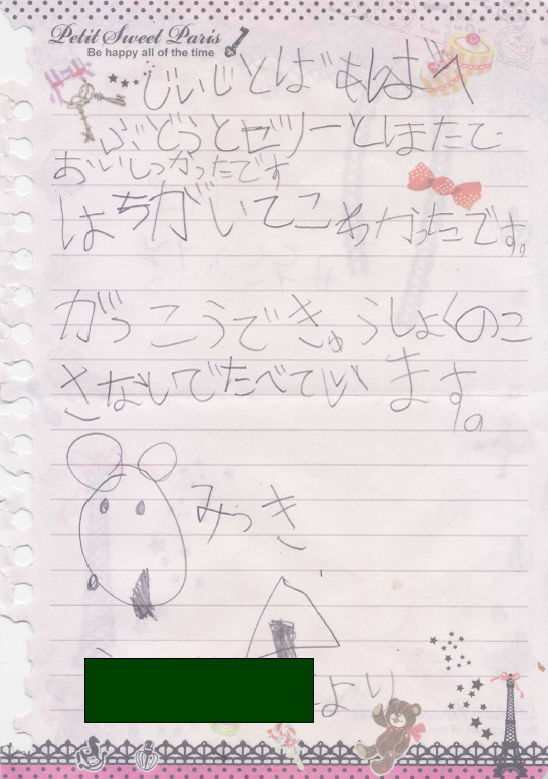 Petit Sweet Paris
Be happy all of the time
じいじとばあばへ
ぶどうとゼリーとほたて
おいしかったです
はちがいてこわかったです。
がっこうできゅうしょくのこ
さないでたべています。
みっき
より